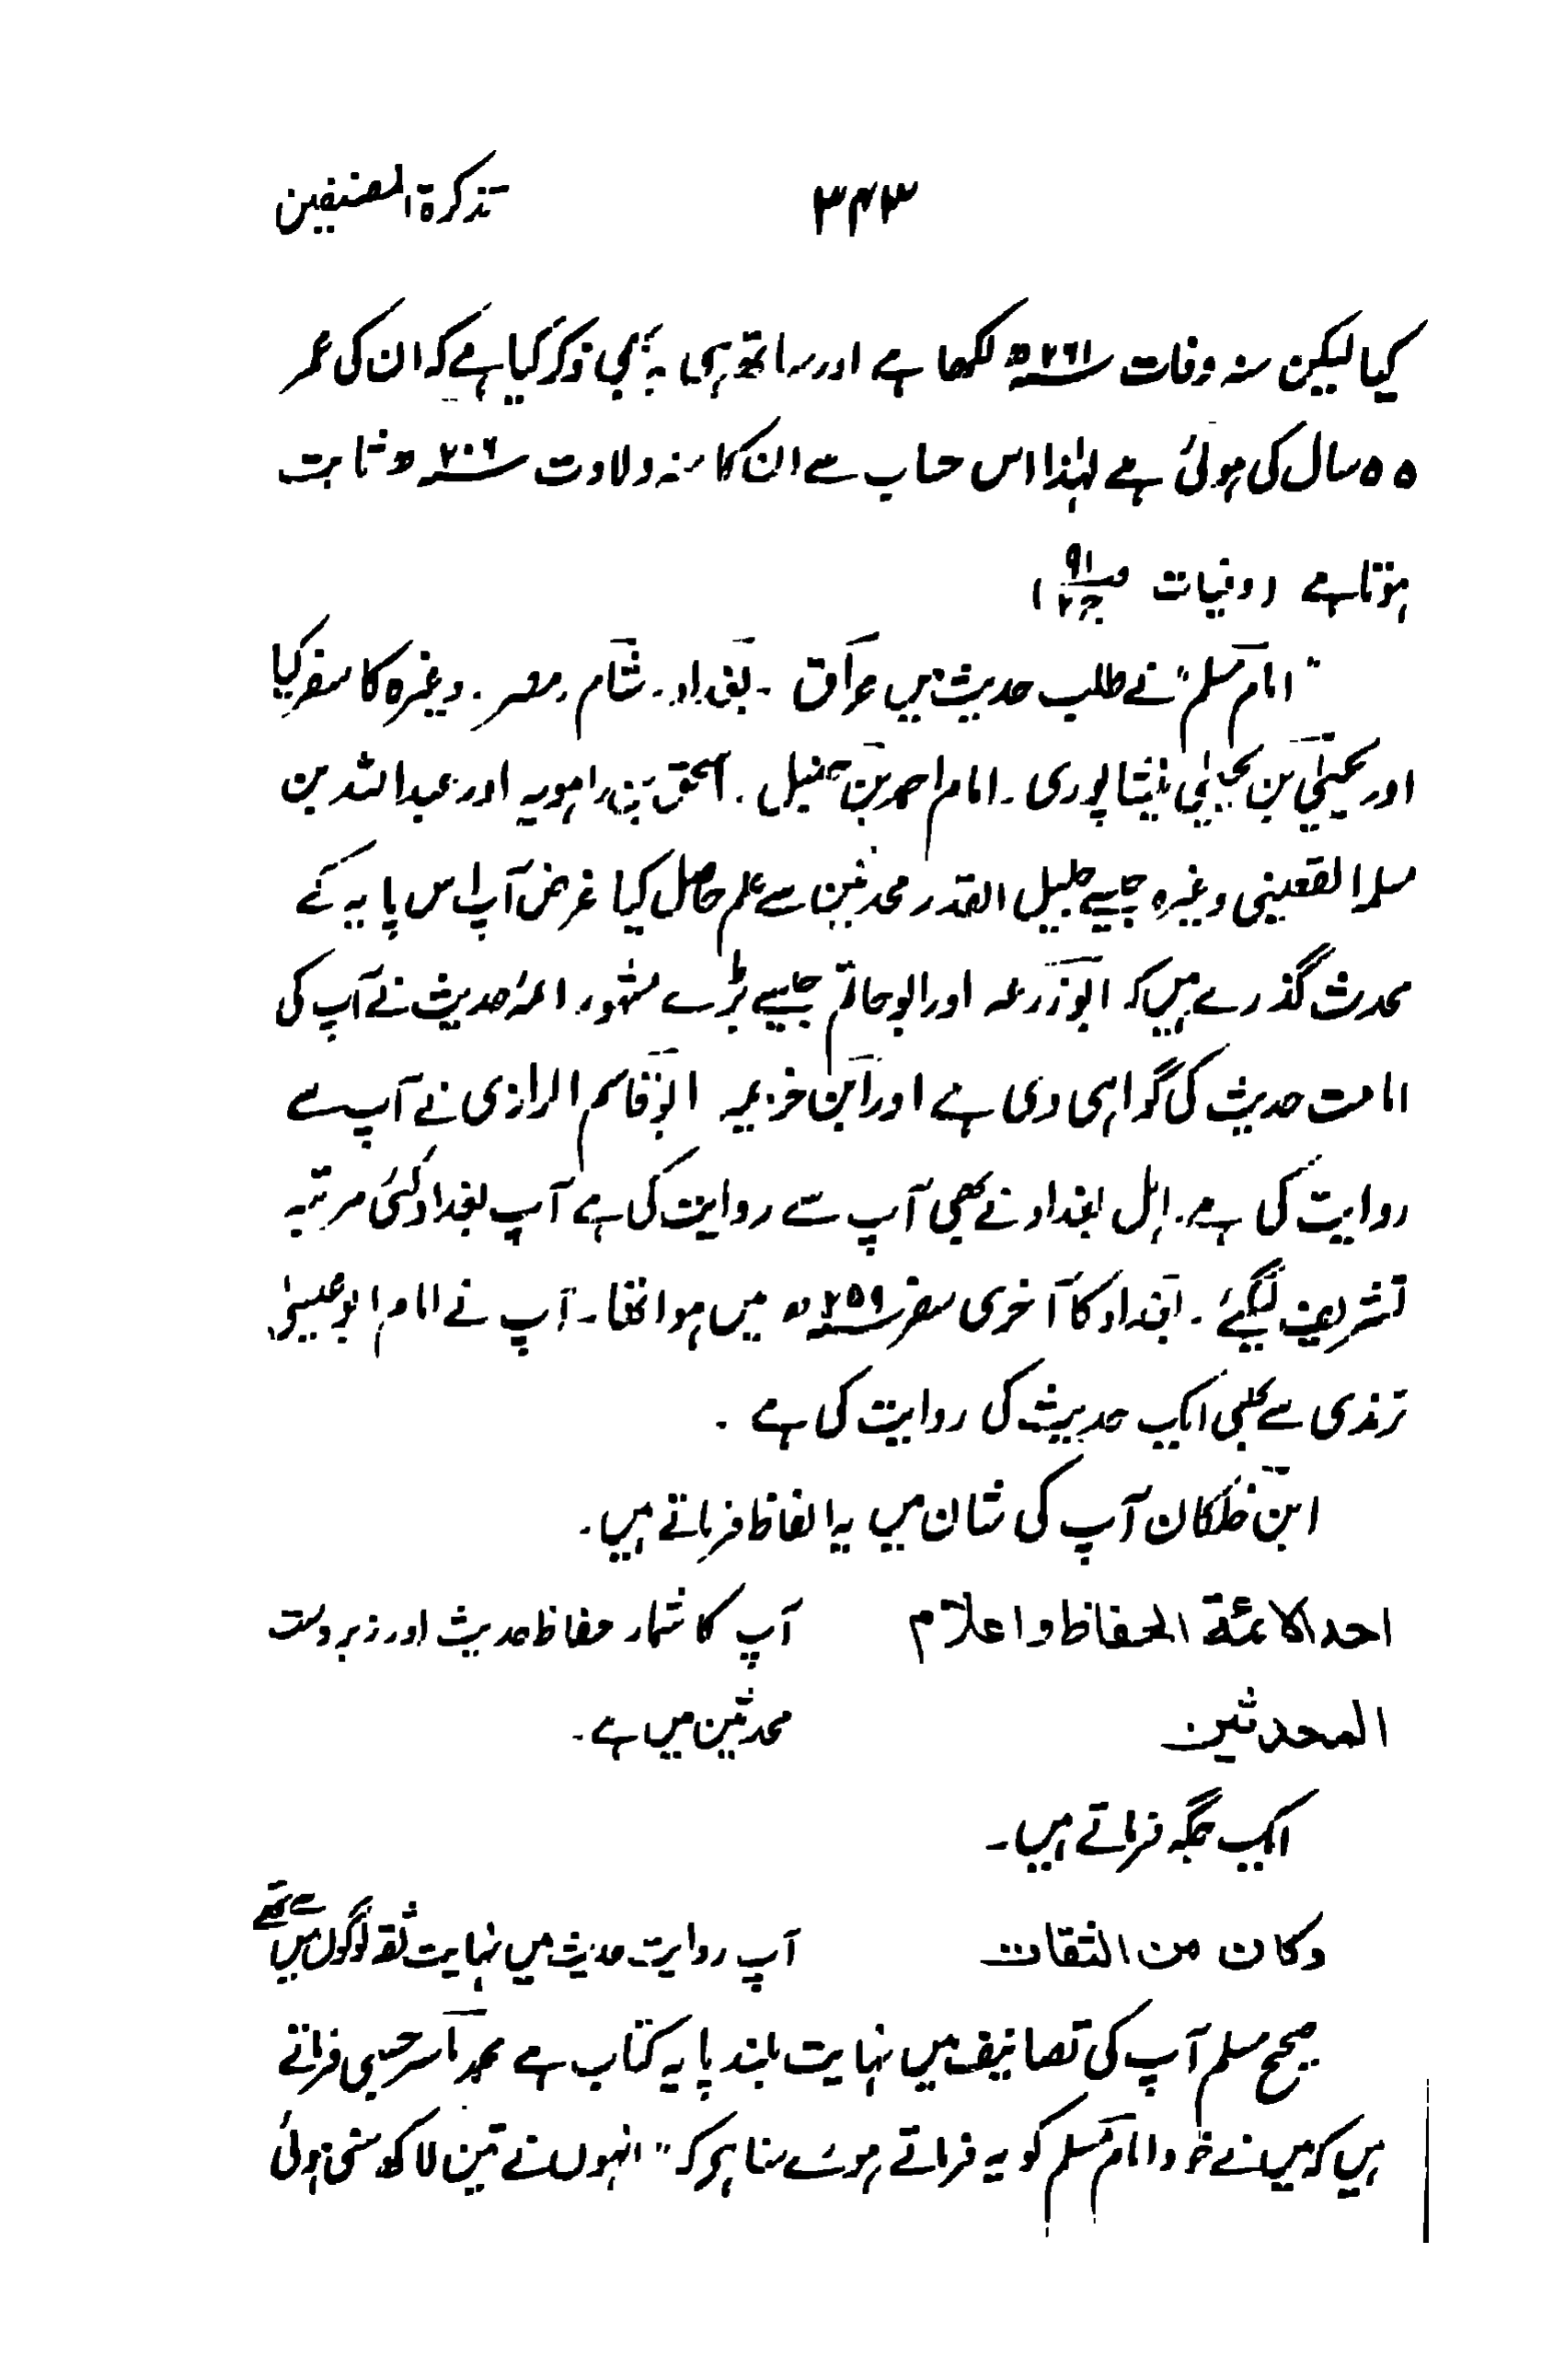 تذکرۃ المصنفین ۳۴۳
کیا لیکن سنہ وفات ۲۶۱ھ لکھا ہے اور ساتھ ہی یہ بھی ذکر کیا ہے کہ ان کی عمر
۵۵ سال کی ہوئی ہے لہٰذا اس حساب سے ان کا سنہ ولادت ۲۰۶ھ ثابت
ہوتا ہے (وفیات ص۹۱ ج۲)
"امام مسلم" نے طلب حدیث میں عراق ۔ بغداد ۔ شام ۔ مصر ۔ وغیرہ کا سفر کیا
اور یحییٰ بن یحییٰ نیشاپوری ۔ امام احمد بن حنبل ۔ اسحٰق بن راہویہ اور عبداللہ بن
مسلمۃ القعینی وغیرہ جیسے جلیل القدر محدثین سے علم حاصل کیا غرض آپ اس پایہ کے
محدث گذرے ہیں کہ ابوزرعہ اور ابوحاتم جیسے بڑے مشہور ائمہ حدیث نے آپ کی
امامت حدیث کی گواہی دی ہے اور ابن خزیمہ ابوقاسم الرازی نے آپ سے
روایت کی ہے ۔ اہل بغداد نے بھی آپ سے روایت کی ہے آپ بغداد کئی مرتبہ
تشریف لیگئے ۔ بغداد کا آخری سفر ۲۵۹ھ میں ہوا تھا ۔ آپ نے امام ابوعیسیٰ
ترمذی سے بھی ایک حدیث کی روایت کی ہے ۔
ابن خلکان آپ کی شان میں یہ الفاظ فرماتے ہیں ۔
احد الائمۃ الحفاظ واعلام آپ کا شمار حفاظ حدیث اور زبردست
المحدثین محدثین میں ہے ۔
ایک جگہ فرماتے ہیں ۔
وکان من الثقات آپ روایت حدیث میں نہایت ثقہ لوگوں میں سے تھے
صحیح مسلم آپ کی تصانیف میں نہایت بلند پایہ کتاب ہے محمد ماسرحبسی فرماتے
ہیں کہ میں نے خود امام مسلم کو یہ فرماتے ہوئے سنا ہے کہ "انہوں نے تین لاکھ سنی ہوئی